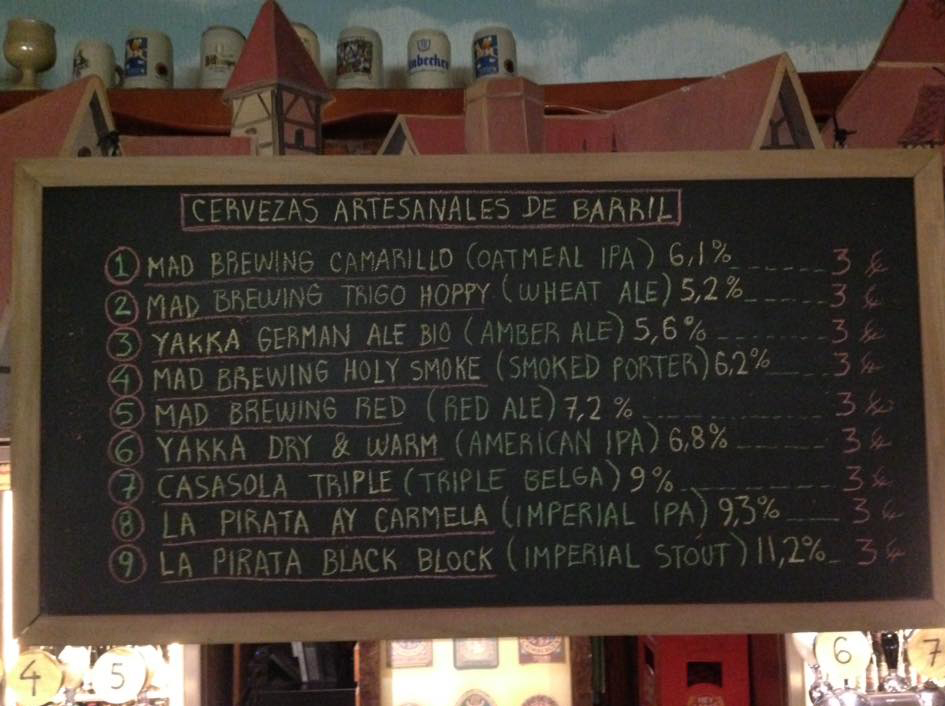 CERVEZAS ARTESANALES DE BARRIL
1 MAD BREWING CAMARILLO (OATMEAL IPA) 6,1% 3 €
2 MAD BREWING TRIGO HOPPY (WHEAT ALE) 5,2% 3 €
3 YAKKA GERMAN ALE BIO (AMBER ALE) 5,6% 3 €
4 MAD BREWING HOLY SMOKE (SMOKED PORTER) 6,2% 3 €
5 MAD BREWING RED (RED ALE) 7,2 % 3 €
6 YAKKA DRY & WARM (AMERICAN IPA) 6,8% 3 €
7 CASASOLA TRIPLE (TRIPLE BELGA) 9% 3 €
8 LA PIRATA AY CARMELA (IMPERIAL IPA) 9,3% 3 €
9 LA PIRATA BLACK BLOCK (IMPERIAL STOUT) 11,2% 3 €
4 5 6 7